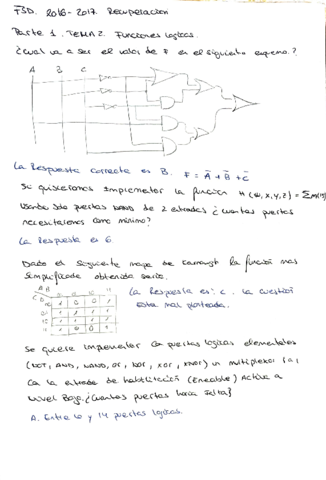 FSD. 2016-2017. Recuperación
Parte 1. TEMA 2. Funciones logicas.
¿Cual va a ser el valor de F en el siguiente esquema?
A B C
La Respuesta correcta es B. F = Ā + B̄ + C̄
Si quisieramos Implementar la función H (w, x, y, z) = Σm
Usando solo puertas NAND de 2 entradas ¿Cuantas puertas
necesitariamos como mínimo?
La Respuesta es 6.
Dado el siguiente mapa de Karnaugh la función mas
simplificada obtenida seria.
AB
CD
La Respuesta es: C. La cuestión
esta mal planteada.
Se quiere implementar con puertas logicas elementales
(NOT, AND, NAND, OR, NOR, XOR, XNOR) un multiplexor
Con la entrada de habilitación (Enable) Activa a
Nivel Bajo. ¿Cuantas puertas haria falta?
A. Entre 10 y 14 puertas logicas.